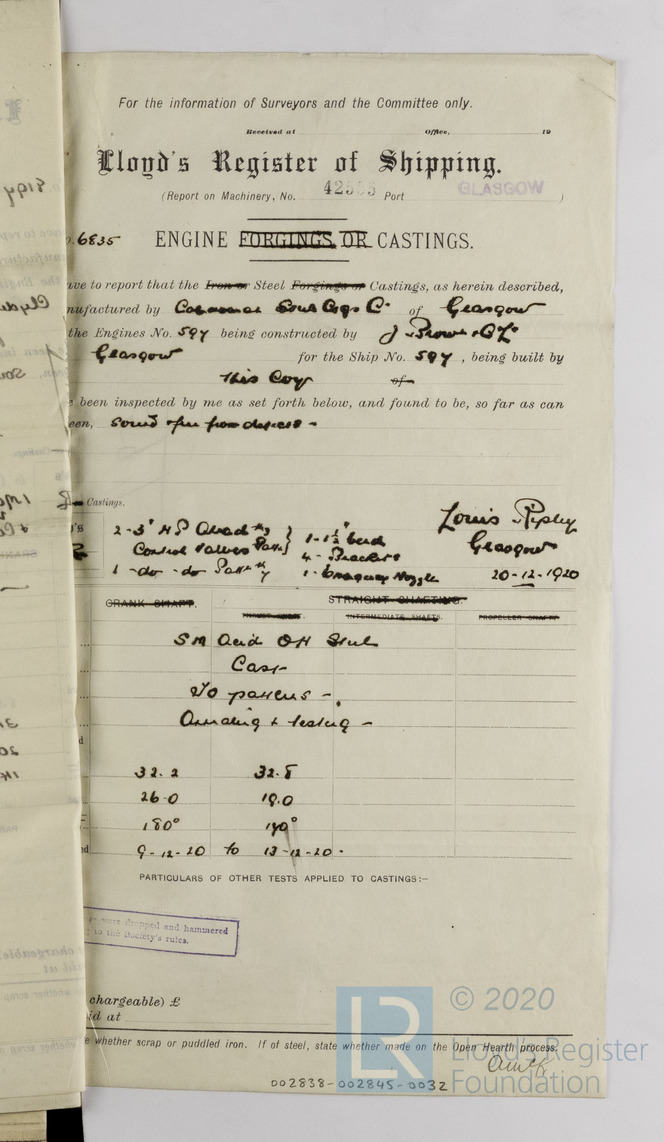 For the information of Surveyors and the Committee only.
Received at Office, 19
Lloyd's Register of Shipping.
(Report on Machinery, No. 42555 Port GLASGOW )
6835 ENGINE FORGINGS OR CASTINGS.
ave to report that the Iron or Steel Forgings or Castings, as herein described,
nufactured by Steel of Glasgow
the Engines No. 597 being constructed by J Brown & Co Ld
Glasgow for the Ship No. 597, being built by
this Coy of
e been inspected by me as set forth below, and found to be, so far as can
een, sound & free from defects -
Castings.
Louis Ripley
2 - 3" H P
Control Valves 1 - 1½" bend
Glasgow
4 - Brackets
1 - do - do 1 - Nozzle
20-12-1920
CRANK SHAFT. STRAIGHT SHAFTING.
THRUST SHAFT. INTERMEDIATE SHAFTS. PROPELLER SHAFT
S M Acid O H Steel
Cast
To patterns -
Annealing & testing -
32.2 32.8
26.0 19.0
180° 190°
9-12-20 to 13-12-20.
PARTICULARS OF OTHER TESTS APPLIED TO CASTINGS:-
were dropped and hammered
to the Society's rules.
chargeable) £
id at
e whether scrap or puddled iron. If of steel, state whether made on the Open Hearth process.
LR
© 2020
Lloyd's Register
Foundation
002838-002845-0032